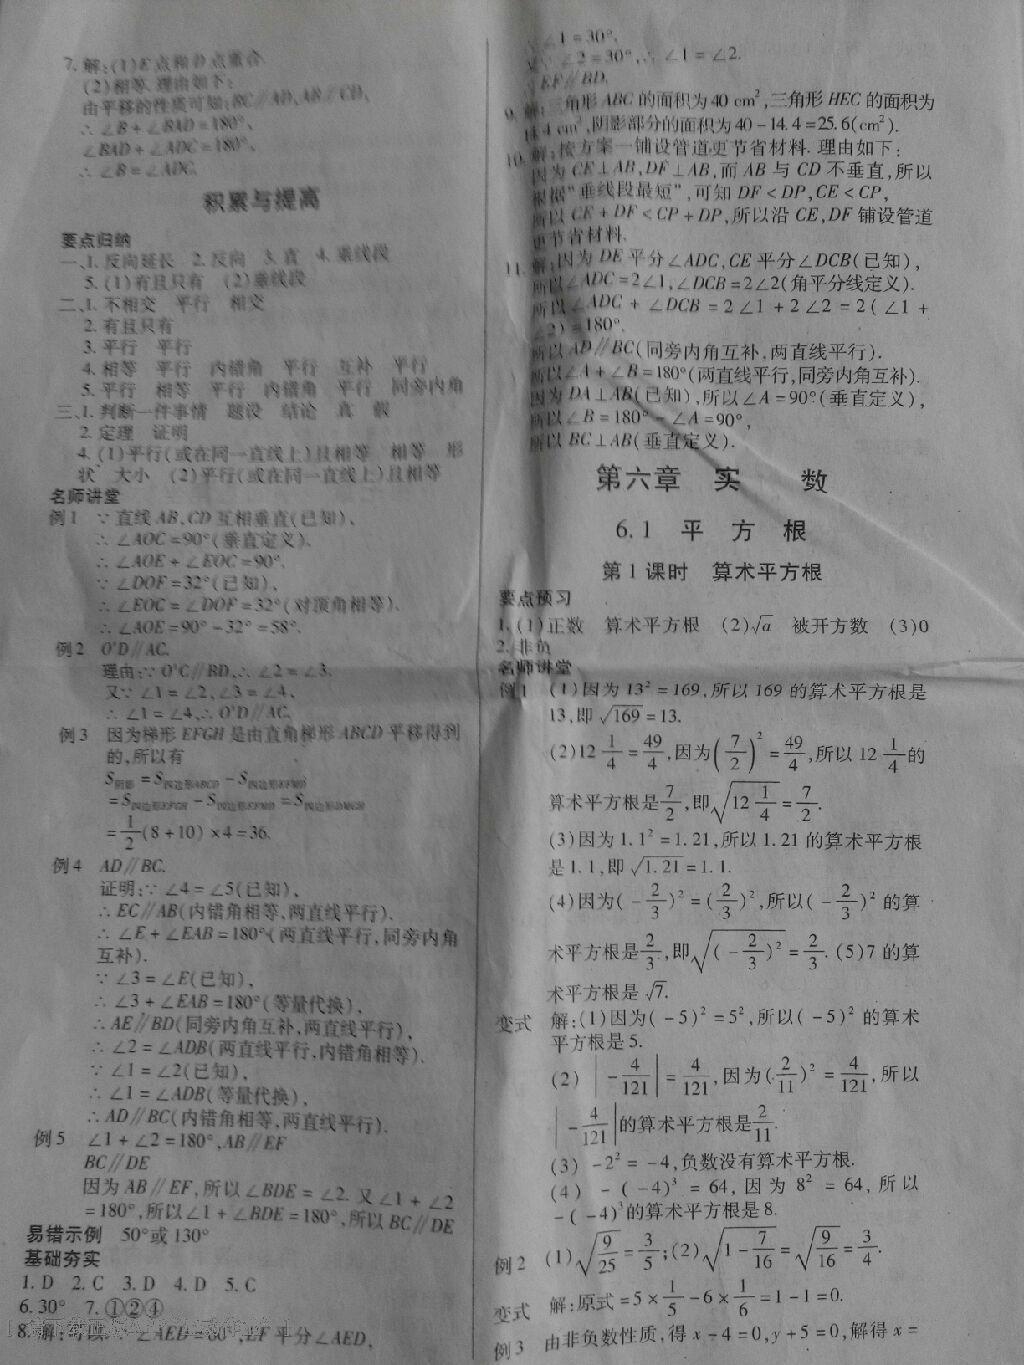 7. 解:(1)E点和D点重合.
(2)相等.理由如下:
由平移的性质可知:BC∥AD,AB∥CD,
∴∠B+∠BAD=180°,
∠BAD+∠ADC=180°,
∴∠B=∠ADC.
积累与提高
要点归纳
一、1. 反向延长 2. 反向 3. 直 4. 垂线段
5. (1)有且只有 (2)垂线段
二、1. 不相交 平行 相交
2. 有且只有
3. 平行 平行
4. 相等 平行 内错角 平行 互补 平行
5. 平行 相等 平行 内错角 平行 同旁内角
三、1. 判断一件事情 题设 结论 真 假
2. 定理 证明
4. (1)平行(或在同一直线上)且相等 相等 形
状 大小 (2)平行(或在同一直线上)且相等
名师讲堂
例1 ∵直线AB、CD互相垂直(已知),
∴∠AOC=90°(垂直定义).
∴∠AOE+∠EOC=90°.
∵∠DOF=32°(已知),
∴∠EOC=∠DOF=32°(对顶角相等).
∴∠AOE=90°-32°=58°.
例2 O'D∥AC.
理由:∵O'C∥BD,∴∠2=∠3.
又∵∠1=∠2,∠3=∠4,
∴∠1=∠4,∴O'D∥AC.
例3 因为梯形EFGH是由直角梯形ABCD平移得到
的,所以有
S阴影=S四边形ABCD-S四边形EFMD
=S四边形EFGH-S四边形EFMD=S四边形DMGH
=1/2(8+10)×4=36.
例4 AD∥BC.
证明:∵∠4=∠5(已知),
∴EC∥AB(内错角相等,两直线平行).
∴∠E+∠EAB=180°(两直线平行,同旁内角
互补).
∵∠3=∠E(已知),
∴∠3+∠EAB=180°(等量代换),
∴AE∥BD(同旁内角互补,两直线平行),
∴∠2=∠ADB(两直线平行,内错角相等).
∵∠1=∠2(已知),
∴∠1=∠ADB(等量代换),
∴AD∥BC(内错角相等,两直线平行).
例5 ∠1+∠2=180°,AB∥EF
BC∥DE
因为AB∥EF,所以∠BDE=∠2.又∠1+∠2
=180°,所以∠1+∠BDE=180°,所以BC∥DE
易错示例 50°或130°
基础夯实
1. D 2. C 3. D 4. D 5. C
6. 30° 7. ①②④
8. 解: ∠AED=60°,EF平分∠AED,
∴∠1=30°,
又∵∠2=30°,∴∠1=∠2.
∴EF∥BD.
9. 解:三角形ABC的面积为40 cm²,三角形HEC的面积为
14.4 cm²,阴影部分的面积为40-14.4=25.6(cm²).
10. 解:按方案一铺设管道更节省材料.理由如下:
因为CE⊥AB,DF⊥AB,而AB与CD不垂直,所以
根据"垂线段最短",可知DF<DP,CE<CP,
所以CE+DF<CP+DP,所以沿CE,DF铺设管道
更节省材料.
11. 解:因为DE平分∠ADC,CE平分∠DCB(已知),
所以∠ADC=2∠1,∠DCB=2∠2(角平分线定义).
所以∠ADC+∠DCB=2∠1+2∠2=2(∠1+
∠2)=180°.
所以AD∥BC(同旁内角互补,两直线平行).
所以∠A+∠B=180°(两直线平行,同旁内角互补).
因为DA⊥AB(已知),所以∠A=90°(垂直定义),
所以∠B=180°-∠A=90°,
所以BC⊥AB(垂直定义).
第六章 实 数
6.1 平 方 根
第1课时 算术平方根
要点预习
1. (1)正数 算术平方根 (2)√a 被开方数 (3)0
2. 非负
名师讲堂
例1 (1)因为13²=169,所以169的算术平方根是
13,即√169=13.
(2)12 1/4=49/4,因为(7/2)²=49/4,所以12 1/4的
算术平方根是7/2,即√(12 1/4)=7/2.
(3)因为1.1²=1.21,所以1.21的算术平方根
是1.1,即√1.21=1.1.
(4)因为(-2/3)²=(2/3)²,所以(-2/3)²的算
术平方根是2/3,即√((-2/3)²)=2/3. (5)7的算
术平方根是√7.
变式 解:(1)因为(-5)²=5²,所以(-5)²的算术
平方根是5.
(2)|-4/121|=4/121,因为(2/11)²=4/121,所以
|-4/121|的算术平方根是2/11.
(3)-2²=-4,负数没有算术平方根.
(4)-(-4)³=64,因为8²=64,所以
-(-4)³的算术平方根是8.
例2 (1)√(9/25)=3/5;(2)√(1-7/16)=√(9/16)=3/4.
变式 解:原式=5×1/5-6×1/6=1-1=0.
例3 由非负数性质,得x-4=0,y+5=0,解得x=